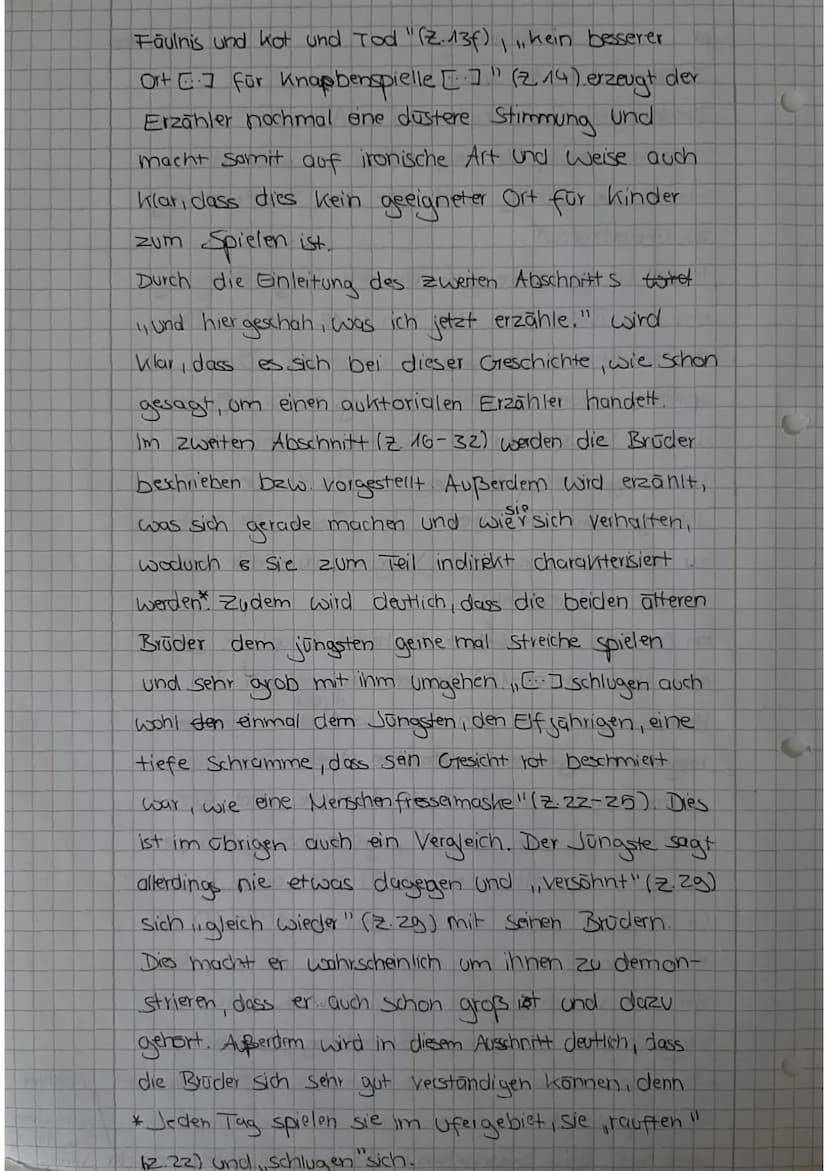 Fäulnis und Kot und Tod" (Z.13f), „kein besserer
Ort [..] für Knappenspielle [..]" (Z.14). erzeugt der
Erzähler nochmal eine düstere Stimmung und
macht somit auf ironische Art und Weise auch
klar, dass dies kein geeigneter Ort für Kinder
zum Spielen ist.
Durch die Einleitung des zweiten Abschnitts wird
„und hier geschah, was ich jetzt erzähle." wird
klar, dass es sich bei dieser Geschichte, wie schon
gesagt, um einen auktorialen Erzähler handelt.
Im zweiten Abschnitt (Z.16-32) werden die Brüder
beschrieben bzw. vorgestellt. Außerdem wird erzählt,
was sich gerade machen und wie sie sich verhalten,
wodurch sie zum Teil indirekt charakterisiert
werden*. Zudem wird deutlich, dass die beiden älteren
Brüder dem jüngsten gerne mal Streiche spielen
und sehr grob mit ihm umgehen. „[..] schlugen auch
wohl den einmal dem Jüngsten, den Elfjährigen, eine
tiefe Schramme, dass sein Gesicht rot beschmiert
war, wie eine Menschenfressermaske" (Z.22-25). Dies
ist im übrigen auch ein Vergleich. Der Jüngste sagt
allerdings nie etwas dagegen und „versöhnt" (Z.29)
sich „gleich wieder" (Z.29) mit seinen Brüdern.
Dies macht er wahrscheinlich um ihnen zu demon-
strieren, dass er auch schon groß ist und dazu
gehört. Außerdem wird in diesem Ausschnitt deutlich, dass
die Brüder sich sehr gut verständigen können, denn
* Jeden Tag spielen sie im Ufergebiet, sie „rauften"
(Z.22) und „schlugen" sich.